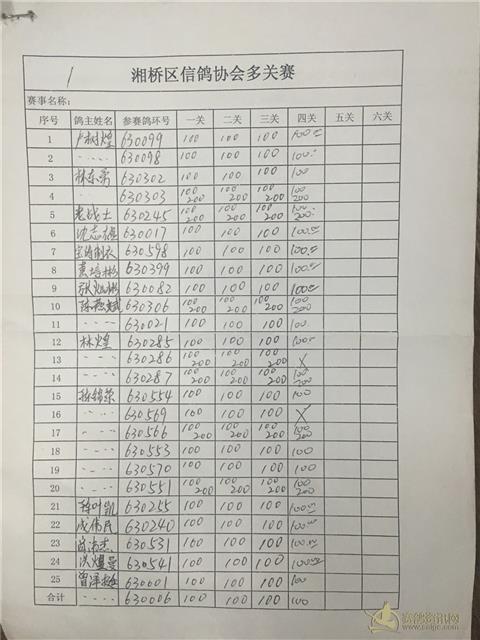 1
湘桥区信鸽协会多关赛
赛事名称：
序号 鸽主姓名 参赛鸽环号 一关 二关 三关 四关 五关 六关
1 卢树煌 630099 100 100 100 100
2 〃 630098 100 100 100 100
3 林东常 630302 100 100 100 100
4 630303 100 200 100 200 100 200 100 200
5 老战士 630245 100 200 100 200 100 200 100 200
6 沈志雄 630017 100 100 100 100
7 制衣 630598 100 100 100 100
8 黄培彬 630399 100 100 100 100
9 张 彬 630082 100 100 100 100
10 陈燕 630306 100 200 100 200 100 200 100 200
11 〃 630021 100 100 100 100
12 林煌 630285 100 100 100 100
13 〃 630286 100 200 100 200 100 200 X
14 〃 630287 100 200 100 200 100 200 100 200
15 林锦荣 630554 100 100 100 100
16 〃 630569 100 100 100 X
17 〃 630566 100 200 100 200 100 200 100 200
18 〃 630553 100 100 100 100
19 〃 630570 100 100 100 100
20 〃 630551 100 200 100 200 100 200 100 200
21 陈叶凯 630255 100 100 100 100
22 成伟民 630240 100 100 100 100
23 630531 100 100 100 100
24 洪煌曼 630541 100 100 100 100
25 曾泽 630001 100 100 100 100
合计 〃 630006 100 100 100 100
赛鸽资讯网
www.saigc.com